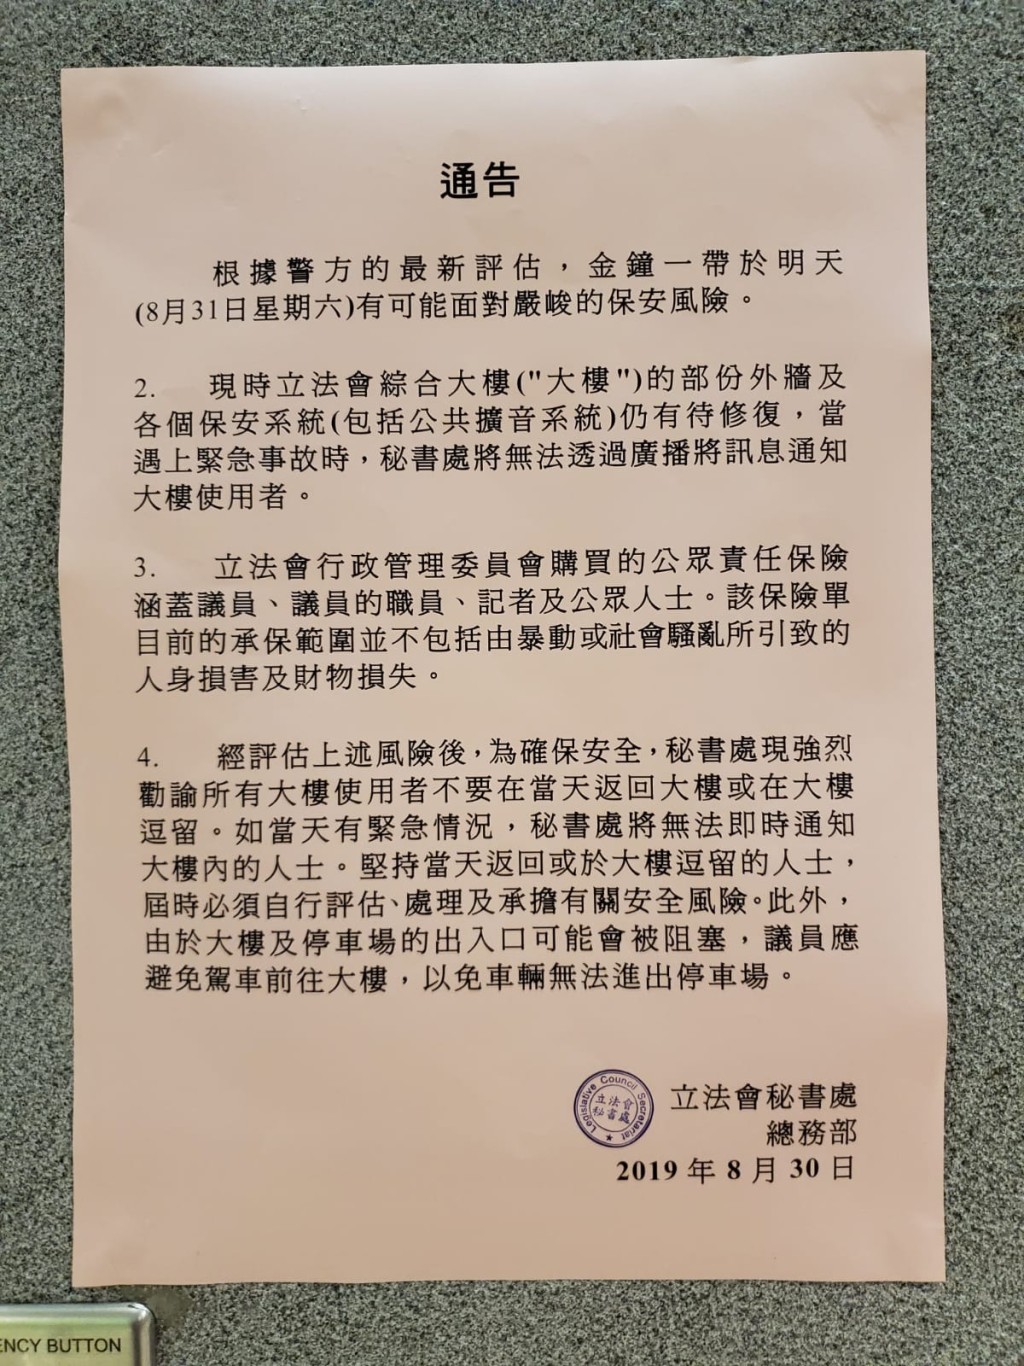 通告
根據警方的最新評估，金鐘一帶於明天
(8月31日星期六)有可能面對嚴峻的保安風險。
2. 現時立法會綜合大樓("大樓")的部份外牆及
各個保安系統(包括公共擴音系統)仍有待修復，當
遇上緊急事故時，秘書處將無法透過廣播將訊息通知
大樓使用者。
3. 立法會行政管理委員會購買的公眾責任保險
涵蓋議員、議員的職員、記者及公眾人士。該保險單
目前的承保範圍並不包括由暴動或社會騷亂所引致的
人身損害及財物損失。
4. 經評估上述風險後，為確保安全，秘書處現強烈
勸諭所有大樓使用者不要在當天返回大樓或在大樓
逗留。如當天有緊急情況，秘書處將無法即時通知
大樓內的人士。堅持當天返回或於大樓逗留的人士，
屆時必須自行評估、處理及承擔有關安全風險。此外，
由於大樓及停車場的出入口可能會被阻塞，議員應
避免駕車前往大樓，以免車輛無法進出停車場。
Legislative Council Secretariat
立法會
秘書處
立法會秘書處
總務部
2019 年 8 月 30 日
ENCY BUTTON